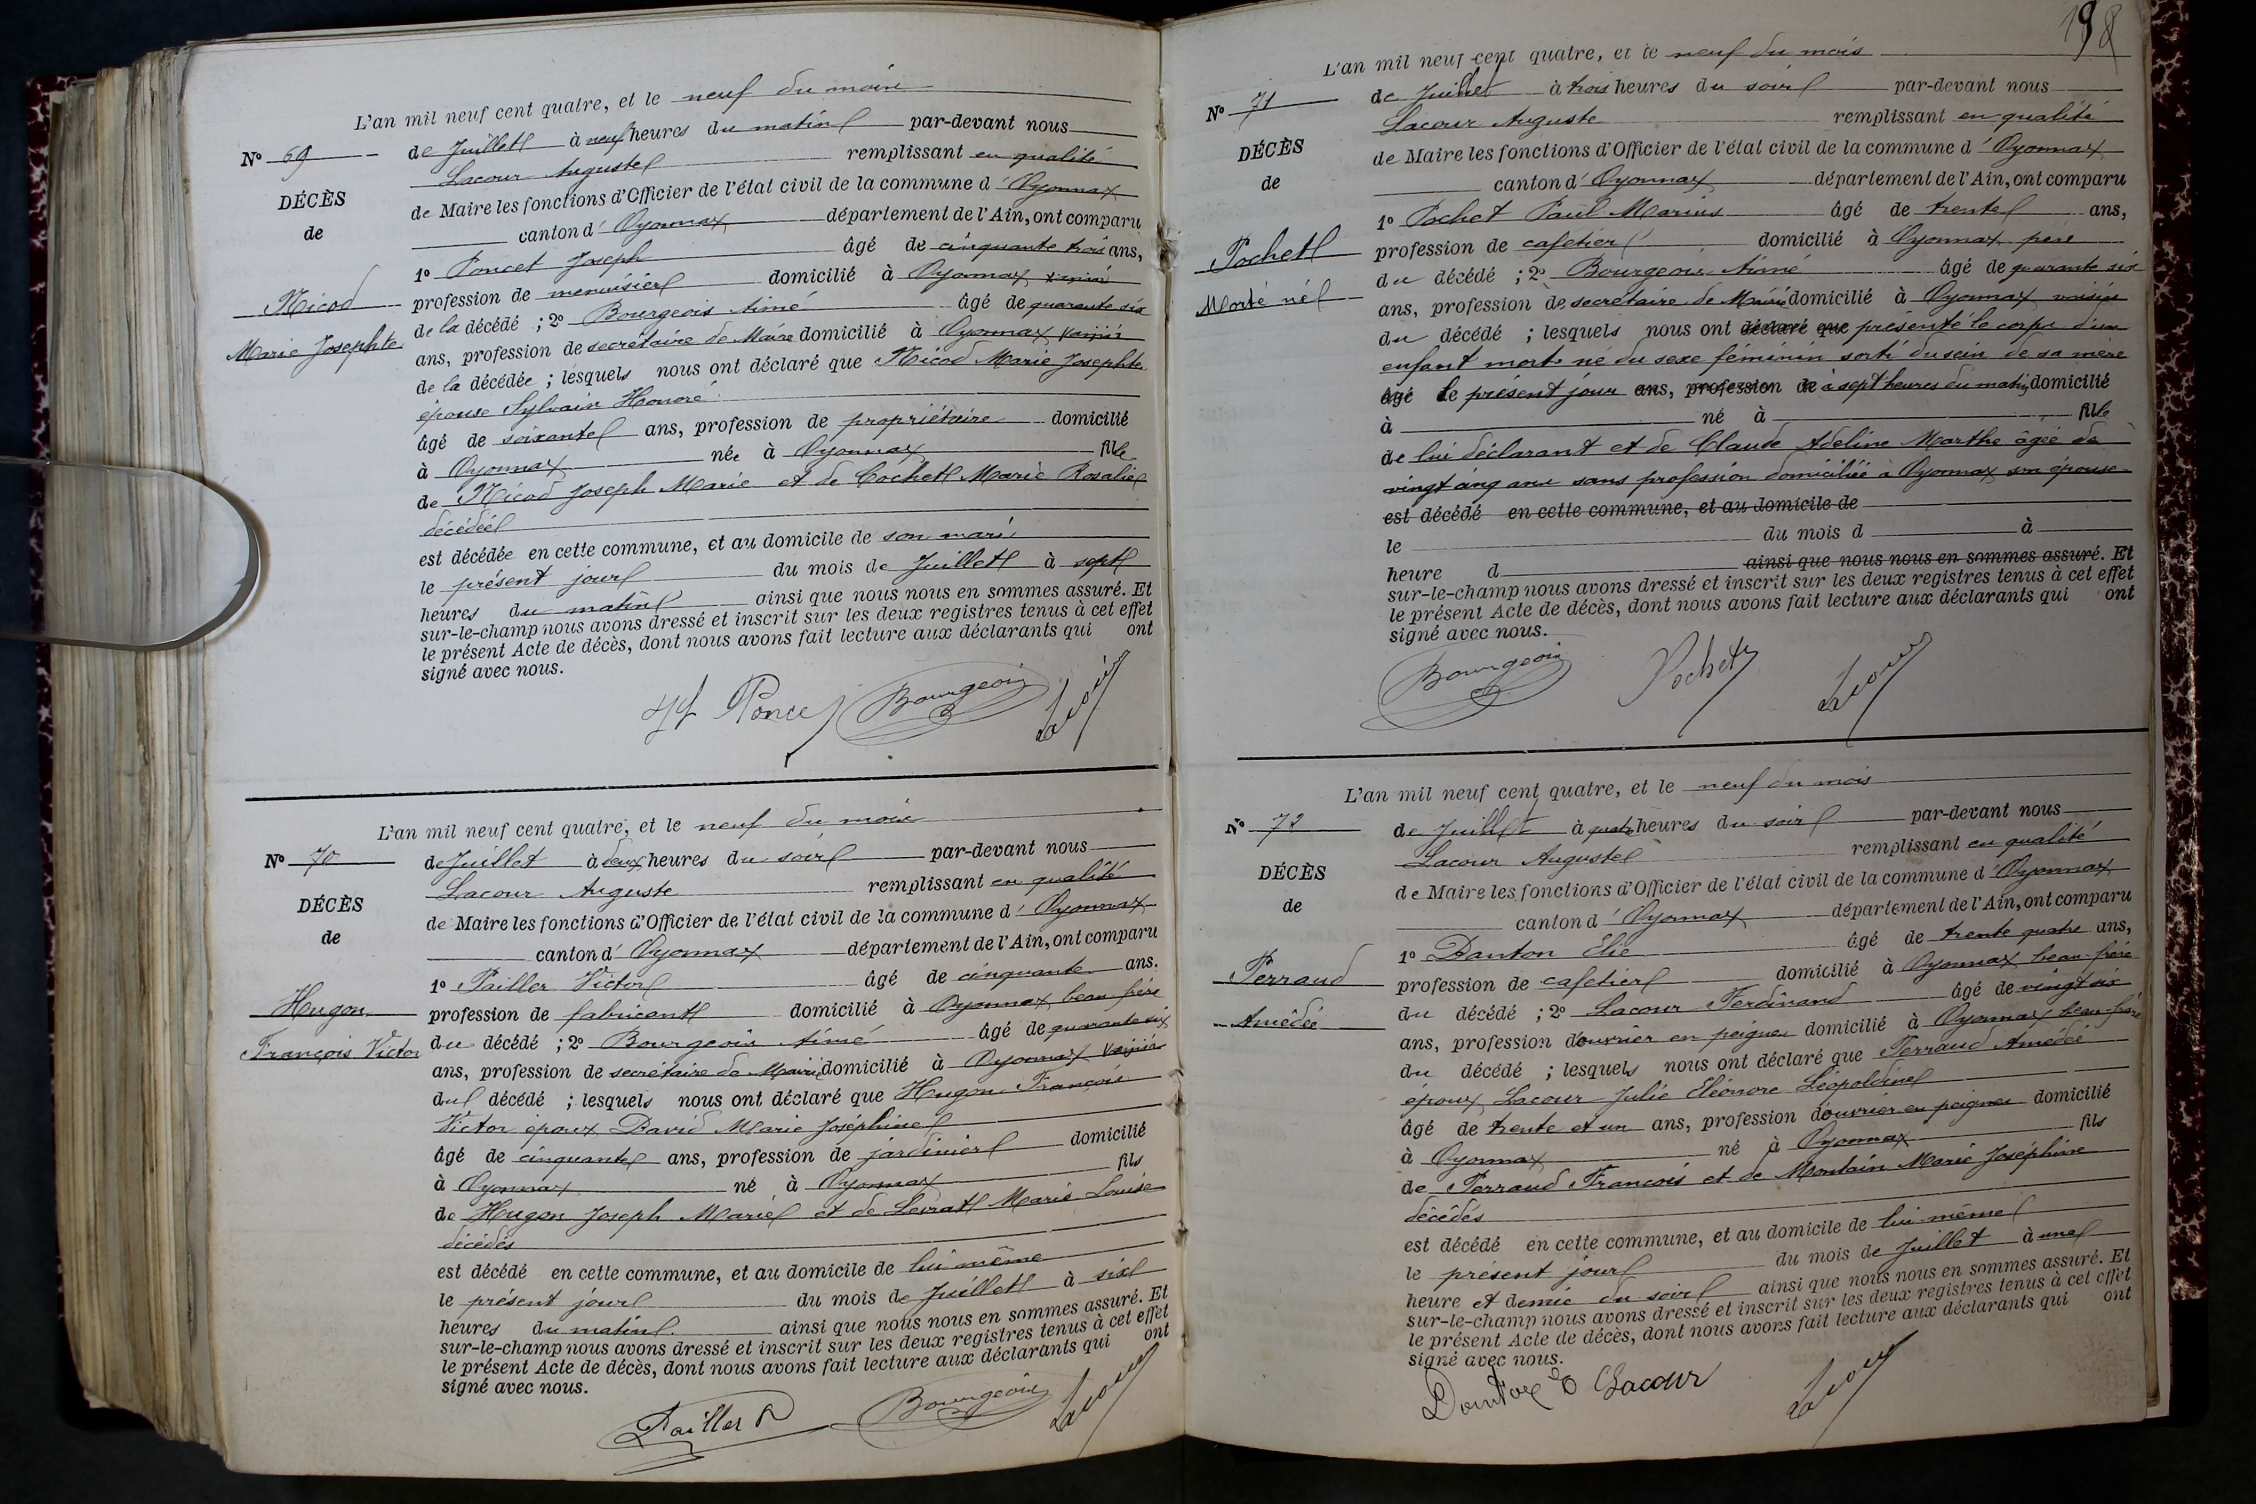 L'an mil neuf cent quatre, et le neuf du mois
No 69
de Juillet à neuf heures du matin par-devant nous
Lacour Auguste remplissant en qualité
DÉCÈS
de Maire les fonctions d'Officier de l'état civil de la commune d'Oyonnax
de
canton d'Oyonnax département de l'Ain, ont comparu
1o Poncet Joseph âgé de cinquante trois ans,
Nicod
profession de menuisier domicilié à Oyonnax voisin
Marie Josephte
de la décédé ; 2o Bourgeois Aimé âgé de quarante six
ans, profession de secrétaire de Mairie domicilié à Oyonnax voisin
de la décédée ; lesquels nous ont déclaré que Nicod Marie Josephte
épouse Sylvain Honoré
âgé de soixante ans, profession de propriétaire domicilié
à Oyonnax née à Oyonnax fille
de Nicod Joseph Marie et de Cochet Marie Rosalie
décédée
est décédée en cette commune, et au domicile de son mari
le présent jour du mois de Juillet à sept
heures du matin ainsi que nous nous en sommes assuré. Et
sur-le-champ nous avons dressé et inscrit sur les deux registres tenus à cet effet
le présent Acte de décès, dont nous avons fait lecture aux déclarants qui ont
signé avec nous.
Poncet Bourgeois Lacour
L'an mil neuf cent quatre, et le neuf du mois
No 70
de Juillet à deux heures du soir par-devant nous
Lacour Auguste remplissant en qualité
DÉCÈS
de Maire les fonctions d'Officier de l'état civil de la commune d'Oyonnax
de
canton d'Oyonnax département de l'Ain, ont comparu
1o Pailler Victor âgé de cinquante ans.
Hugon
profession de fabricant domicilié à Oyonnax beau frère
François Victor
du décédé ; 2o Bourgeois Aimé âgé de quarante six
ans, profession de secrétaire de Mairie domicilié à Oyonnax voisin
du décédé ; lesquels nous ont déclaré que Hugon François
Victor époux David Marie Joséphine
âgé de cinquante ans, profession de jardinier domicilié
à Oyonnax né à Oyonnax fils
de Hugon Joseph Marie et de Levrat Marie Louise
décédés
est décédé en cette commune, et au domicile de lui même
le présent jour du mois de Juillet à six
heures du matin ainsi que nous nous en sommes assuré. Et
sur-le-champ nous avons dressé et inscrit sur les deux registres tenus à cet effet
le présent Acte de décès, dont nous avons fait lecture aux déclarants qui ont
signé avec nous.
Pailler Bourgeois Lacour
198
L'an mil neuf cent quatre, et le neuf du mois
No 71
de Juillet à trois heures du soir par-devant nous
Lacour Auguste remplissant en qualité
DÉCÈS
de Maire les fonctions d'Officier de l'état civil de la commune d'Oyonnax
de
canton d'Oyonnax département de l'Ain, ont comparu
1o Pochet Paul Marius âgé de trente ans,
Pochet
profession de cafetier domicilié à Oyonnax père
du décédé ; 2o Bourgeois Aimé âgé de quarante six
Mort né
ans, profession de secrétaire de Mairie domicilié à Oyonnax voisin
du décédé ; lesquels nous ont déclaré que présenté le corps d'un
enfant mort né du sexe féminin sorti du sein de sa mère
âgé le présent jour ans, profession de à sept heures du matin domicilié
à né à fille
de lui déclarant et de Claude Adeline Marthe âgée de
vingt cinq ans sans profession domiciliée à Oyonnax son épouse
est décédé en cette commune, et au domicile de
le du mois d à
heure d ainsi que nous nous en sommes assuré. Et
sur-le-champ nous avons dressé et inscrit sur les deux registres tenus à cet effet
le présent Acte de décès, dont nous avons fait lecture aux déclarants qui ont
signé avec nous.
Bourgeois Pochet Lacour
L'an mil neuf cent quatre, et le neuf du mois
No 72
de Juillet à quatre heures du soir par-devant nous
Lacour Auguste remplissant en qualité
DÉCÈS
de Maire les fonctions d'Officier de l'état civil de la commune d'Oyonnax
de
canton d'Oyonnax département de l'Ain, ont comparu
1o Danton Elie âgé de trente quatre ans,
Perraud
profession de cafetier domicilié à Oyonnax beau-frère
Amédée
du décédé ; 2o Lacour Ferdinand âgé de vingt six
ans, profession d'ouvrier en peignes domicilié à Oyonnax beau-frère
du décédé ; lesquels nous ont déclaré que Perraud Amédée
époux Lacour Julie Eléonore Léopoldine
âgé de trente et un ans, profession d'ouvrier en peignes domicilié
à Oyonnax né à Oyonnax fils
de Perraud François et de Montain Marie Joséphine
décédés
est décédé en cette commune, et au domicile de lui même
le présent jour du mois de Juillet à une
heure et demie du soir ainsi que nous nous en sommes assuré. Et
sur-le-champ nous avons dressé et inscrit sur les deux registres tenus à cet effet
le présent Acte de décès, dont nous avons fait lecture aux déclarants qui ont
signé avec nous.
Lacour Lacour